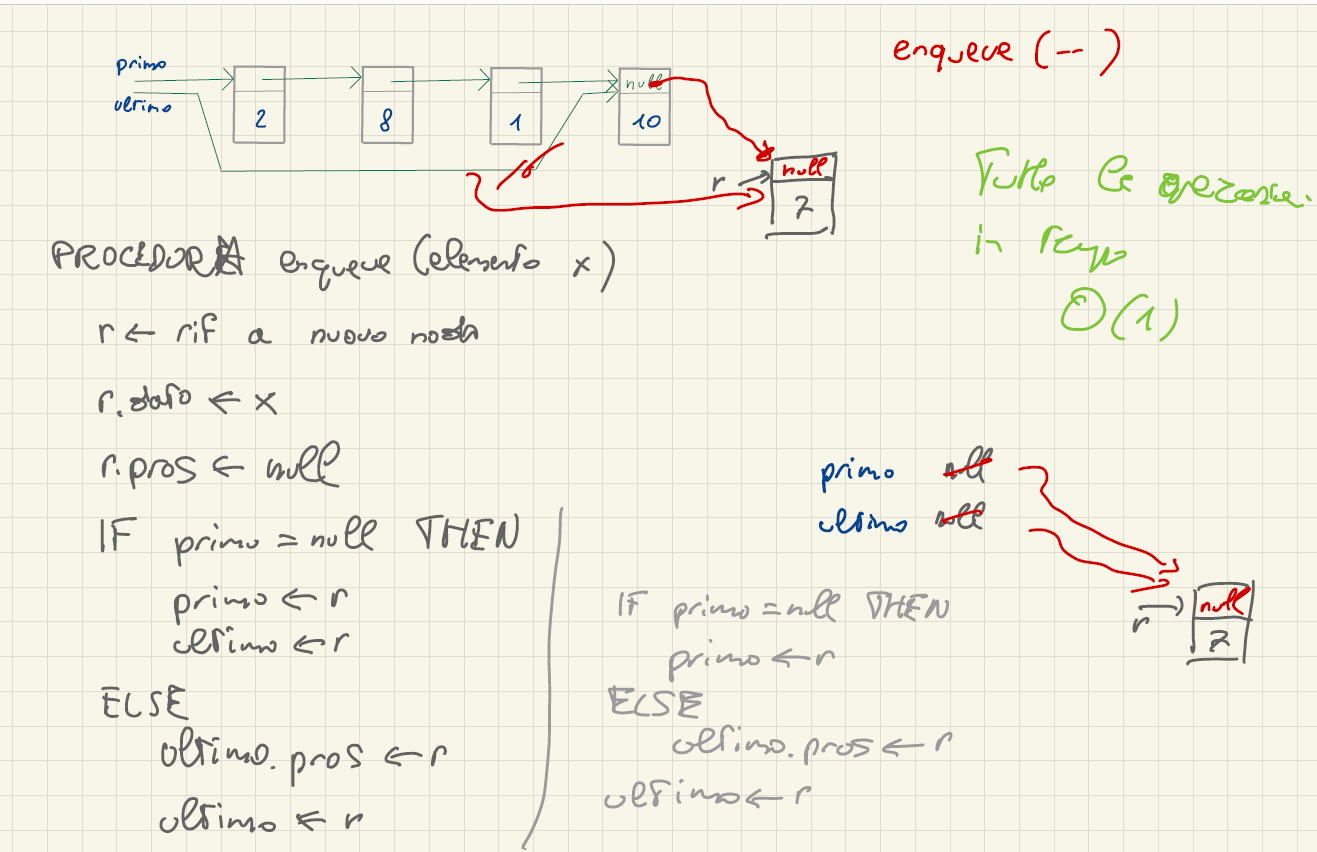 enqueue (--)
primo
ultimo
2
8
1
null
10
null
r
7
Tutte le operazioni
in tempo
O(1)
PROCEDURA enqueue (elemento x)
r ← rif a nuovo nodo
r.dato ← x
r.pros ← null
IF primo = null THEN
primo ← r
ultimo ← r
ELSE
ultimo.pros ← r
ultimo ← r
primo null
ultimo null
r
null
7
IF primo = null THEN
primo ← r
ELSE
ultimo.pros ← r
ultimo ← r